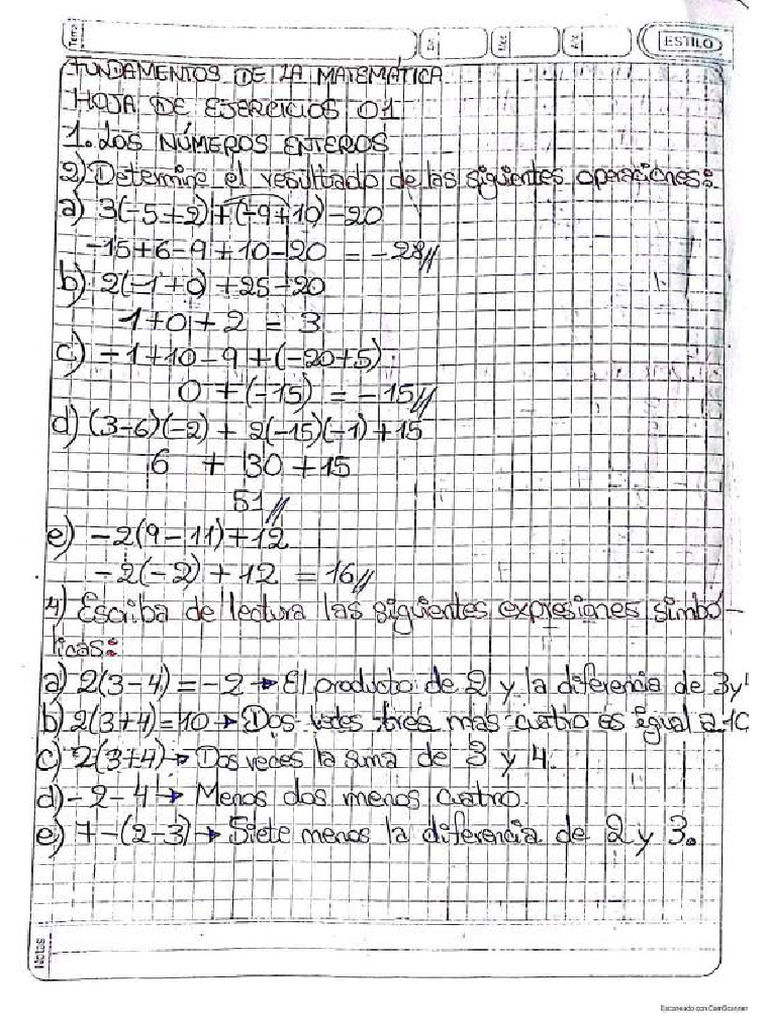 Tema
Día
Mes
Año
ESTILO
FUNDAMENTOS DE LA MATEMÁTICA
HOJA DE EJERCICIOS 01
1. LOS NÚMEROS ENTEROS
2) Determine el resultado de las siguientes operaciones:
a) 3(-5+2)+(-9+10)-20
-15+6-9+10-20 = -28//
b) 2(-1+0)+25-20
1+0+2 = 3
c) -1+10-9+(-20+5)
0 + (-15) = -15//
d) (3-6)(-2) + 2(-15)(-1)+15
6 + 30 + 15
51//
e) -2(9-11)+12
-2(-2)+12 = 16//
4) Escriba de lectura las siguientes expresiones simbó-
licas:
a) 2(3-4) = -2 → El producto de 2 y la diferencia de 3 y
b) 2(3+4)=10 → Dos tres más cuatro es igual a 10
c) 2(3+4) → Dos veces la suma de 3 y 4.
d) -2-4 → Menos dos menos cuatro
e) 7-(2-3) → Siete menos la diferencia de 2 y 3.
Notas
Escaneado con CamScanner